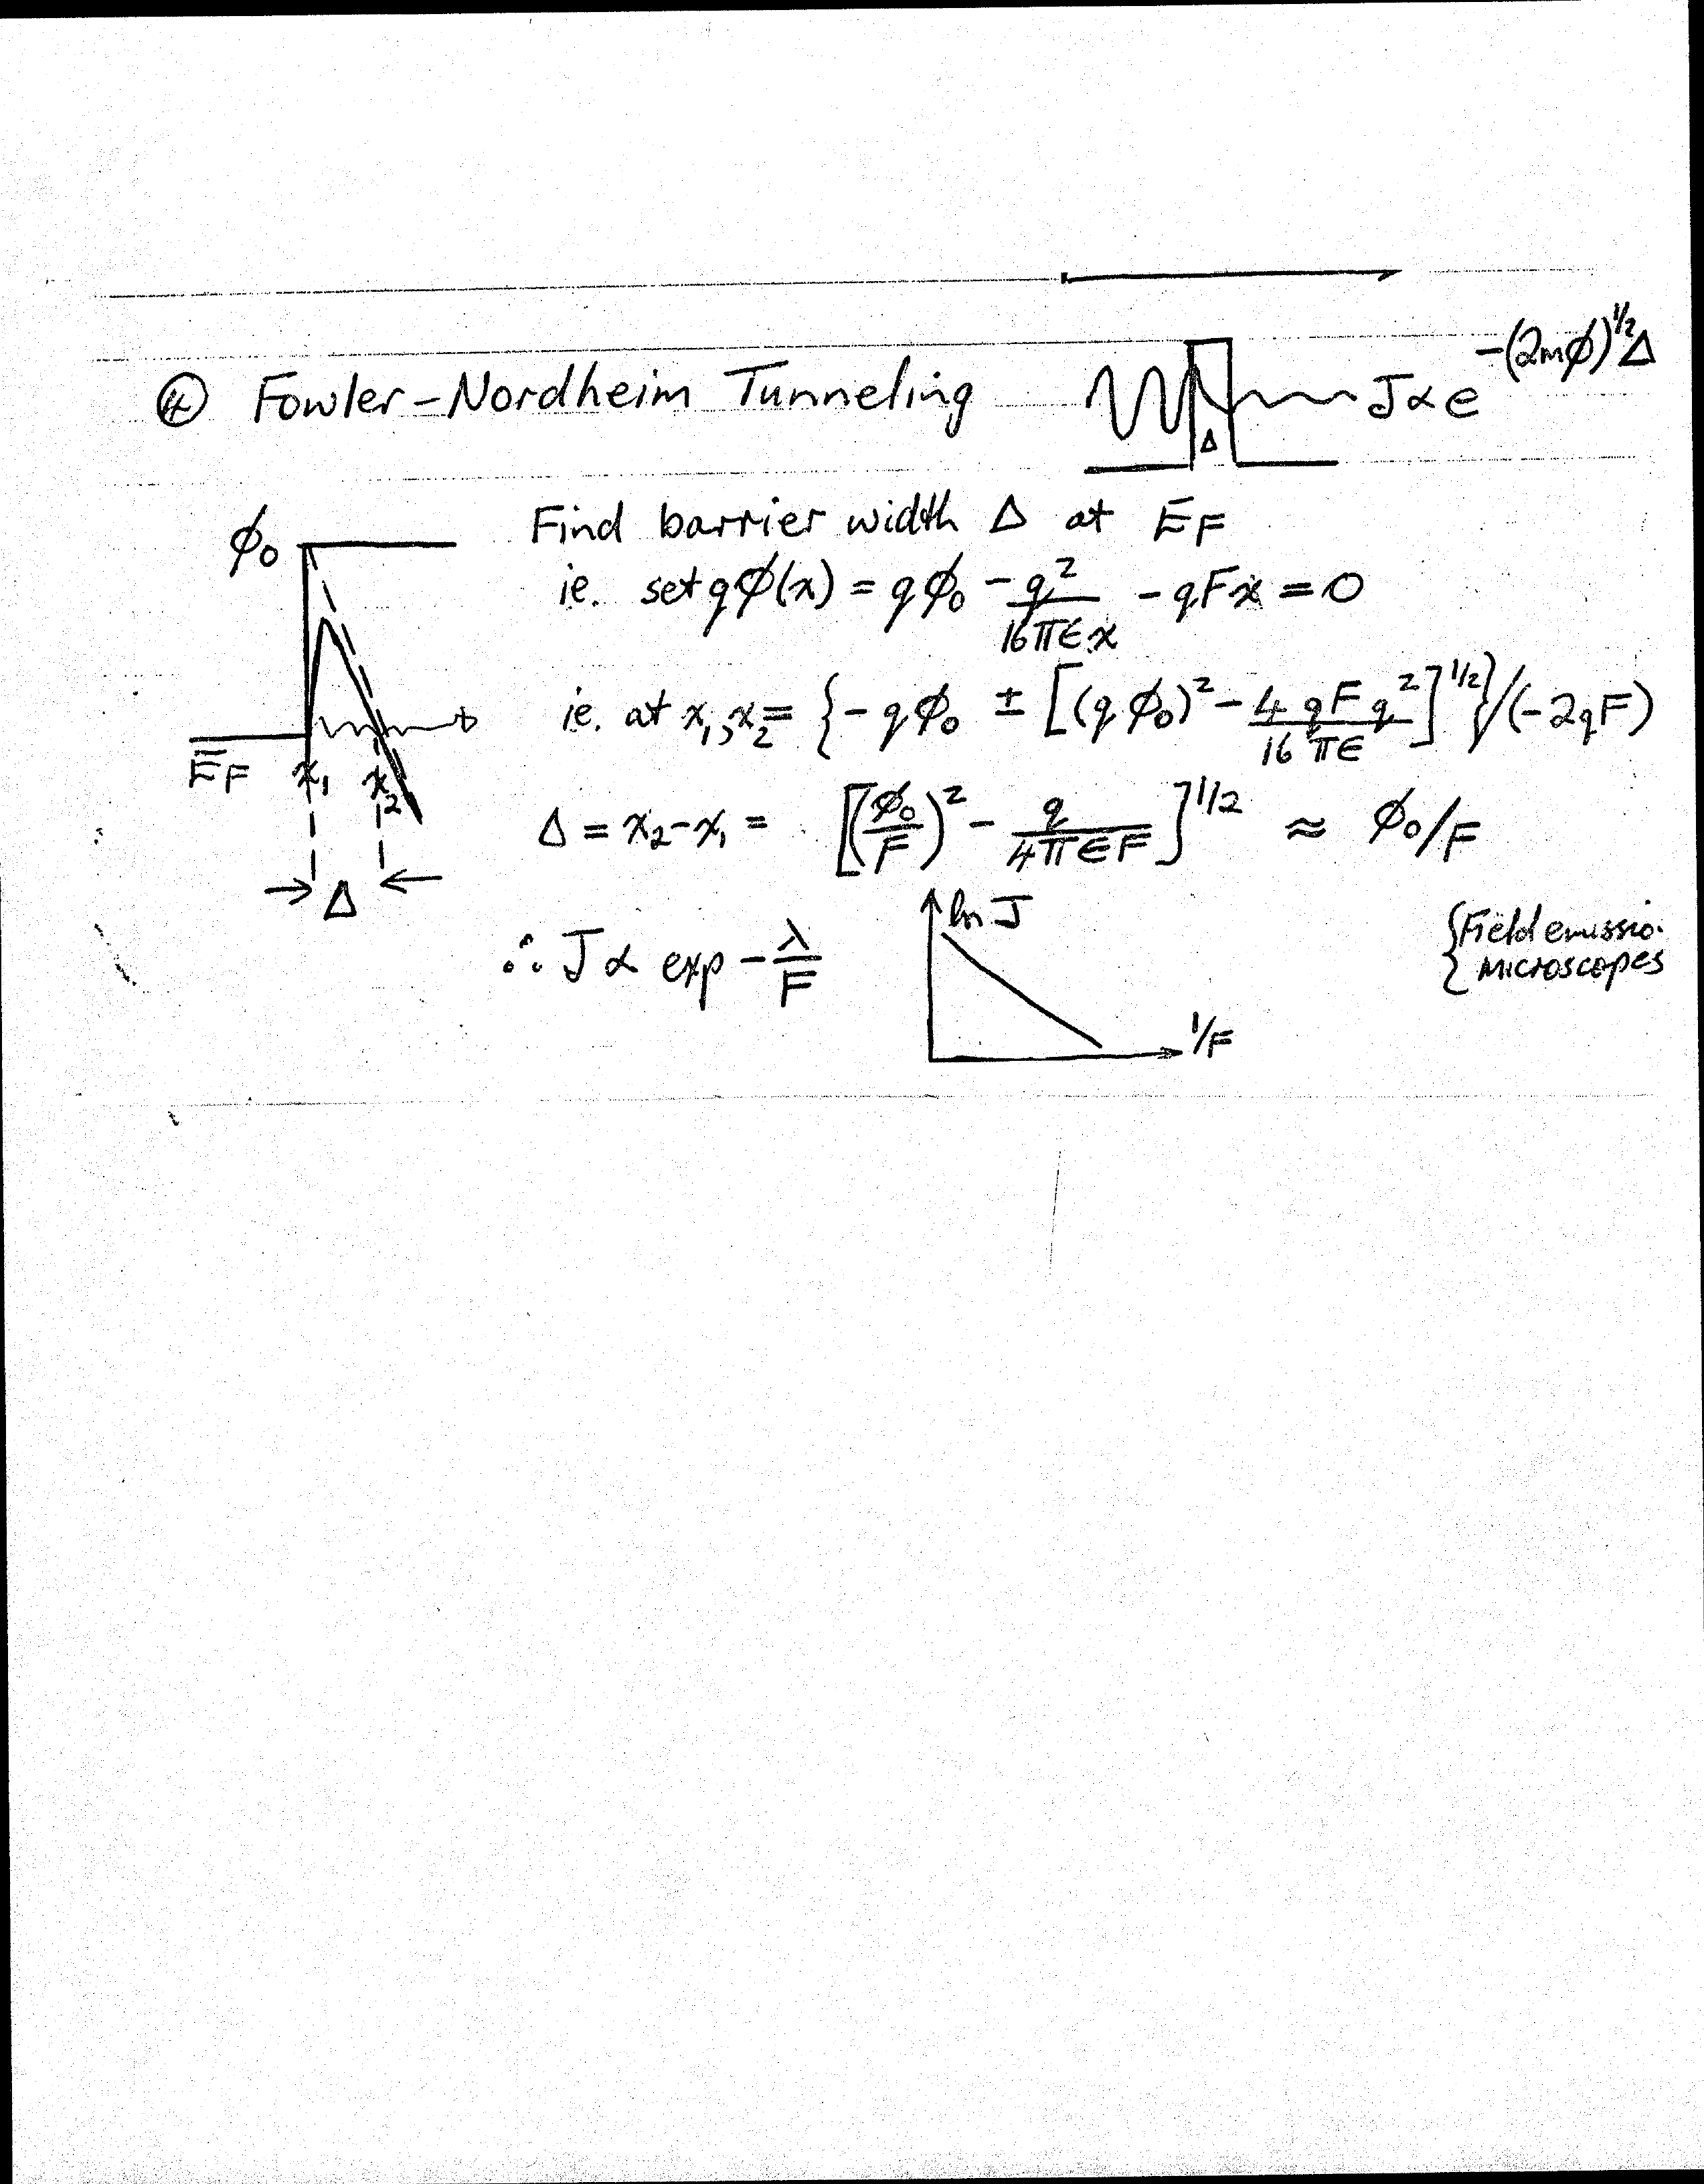 ④ Fowler-Nordheim Tunneling Δ J ∝ e^{-(2mϕ)^{1/2}Δ}
ϕ₀ Find barrier width Δ at E_F
ie. set qϕ(x) = qϕ₀ - q²/16πϵx - qFx = 0
ie. at x₁,x₂ = {-qϕ₀ ± [(qϕ₀)² - 4qFq²/16πϵ]^{1/2}}/(-2qF)
E_F x₁ x₂
Δ = x₂-x₁ = [(ϕ₀/F)² - q/4πϵF]^{1/2} ≈ ϕ₀/F
Δ
∴ J ∝ exp - λ/F
ln J
1/F
{Field emissio.
{Microscopes